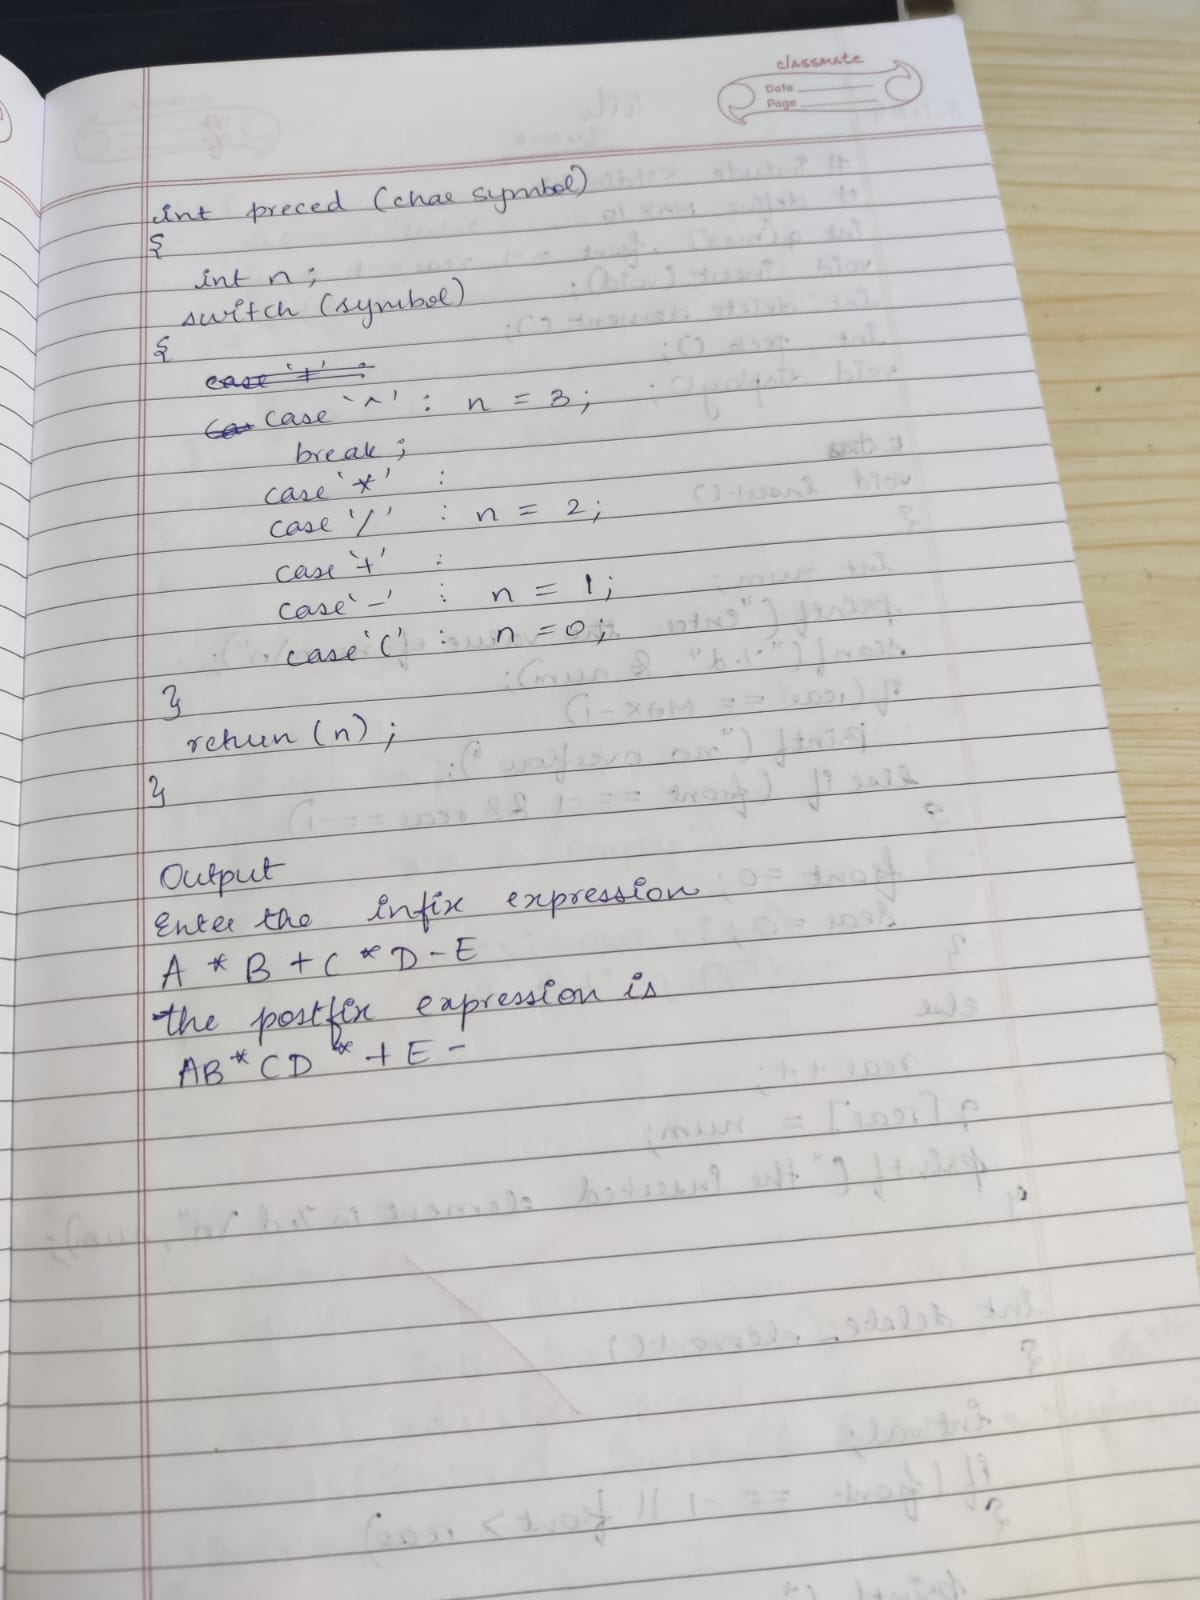 classmate
Date
Page
int preced (char symbol)
{
int n;
switch (symbol)
{
case '+' :
case '^' : n = 3;
break;
case '*' :
case '/' : n = 2;
case '+' :
case '-' : n = 1;
case '(' : n = 0;
}
return (n);
}
Output
Enter the infix expression
A * B + C * D - E
the postfix expression is
AB * CD * + E -